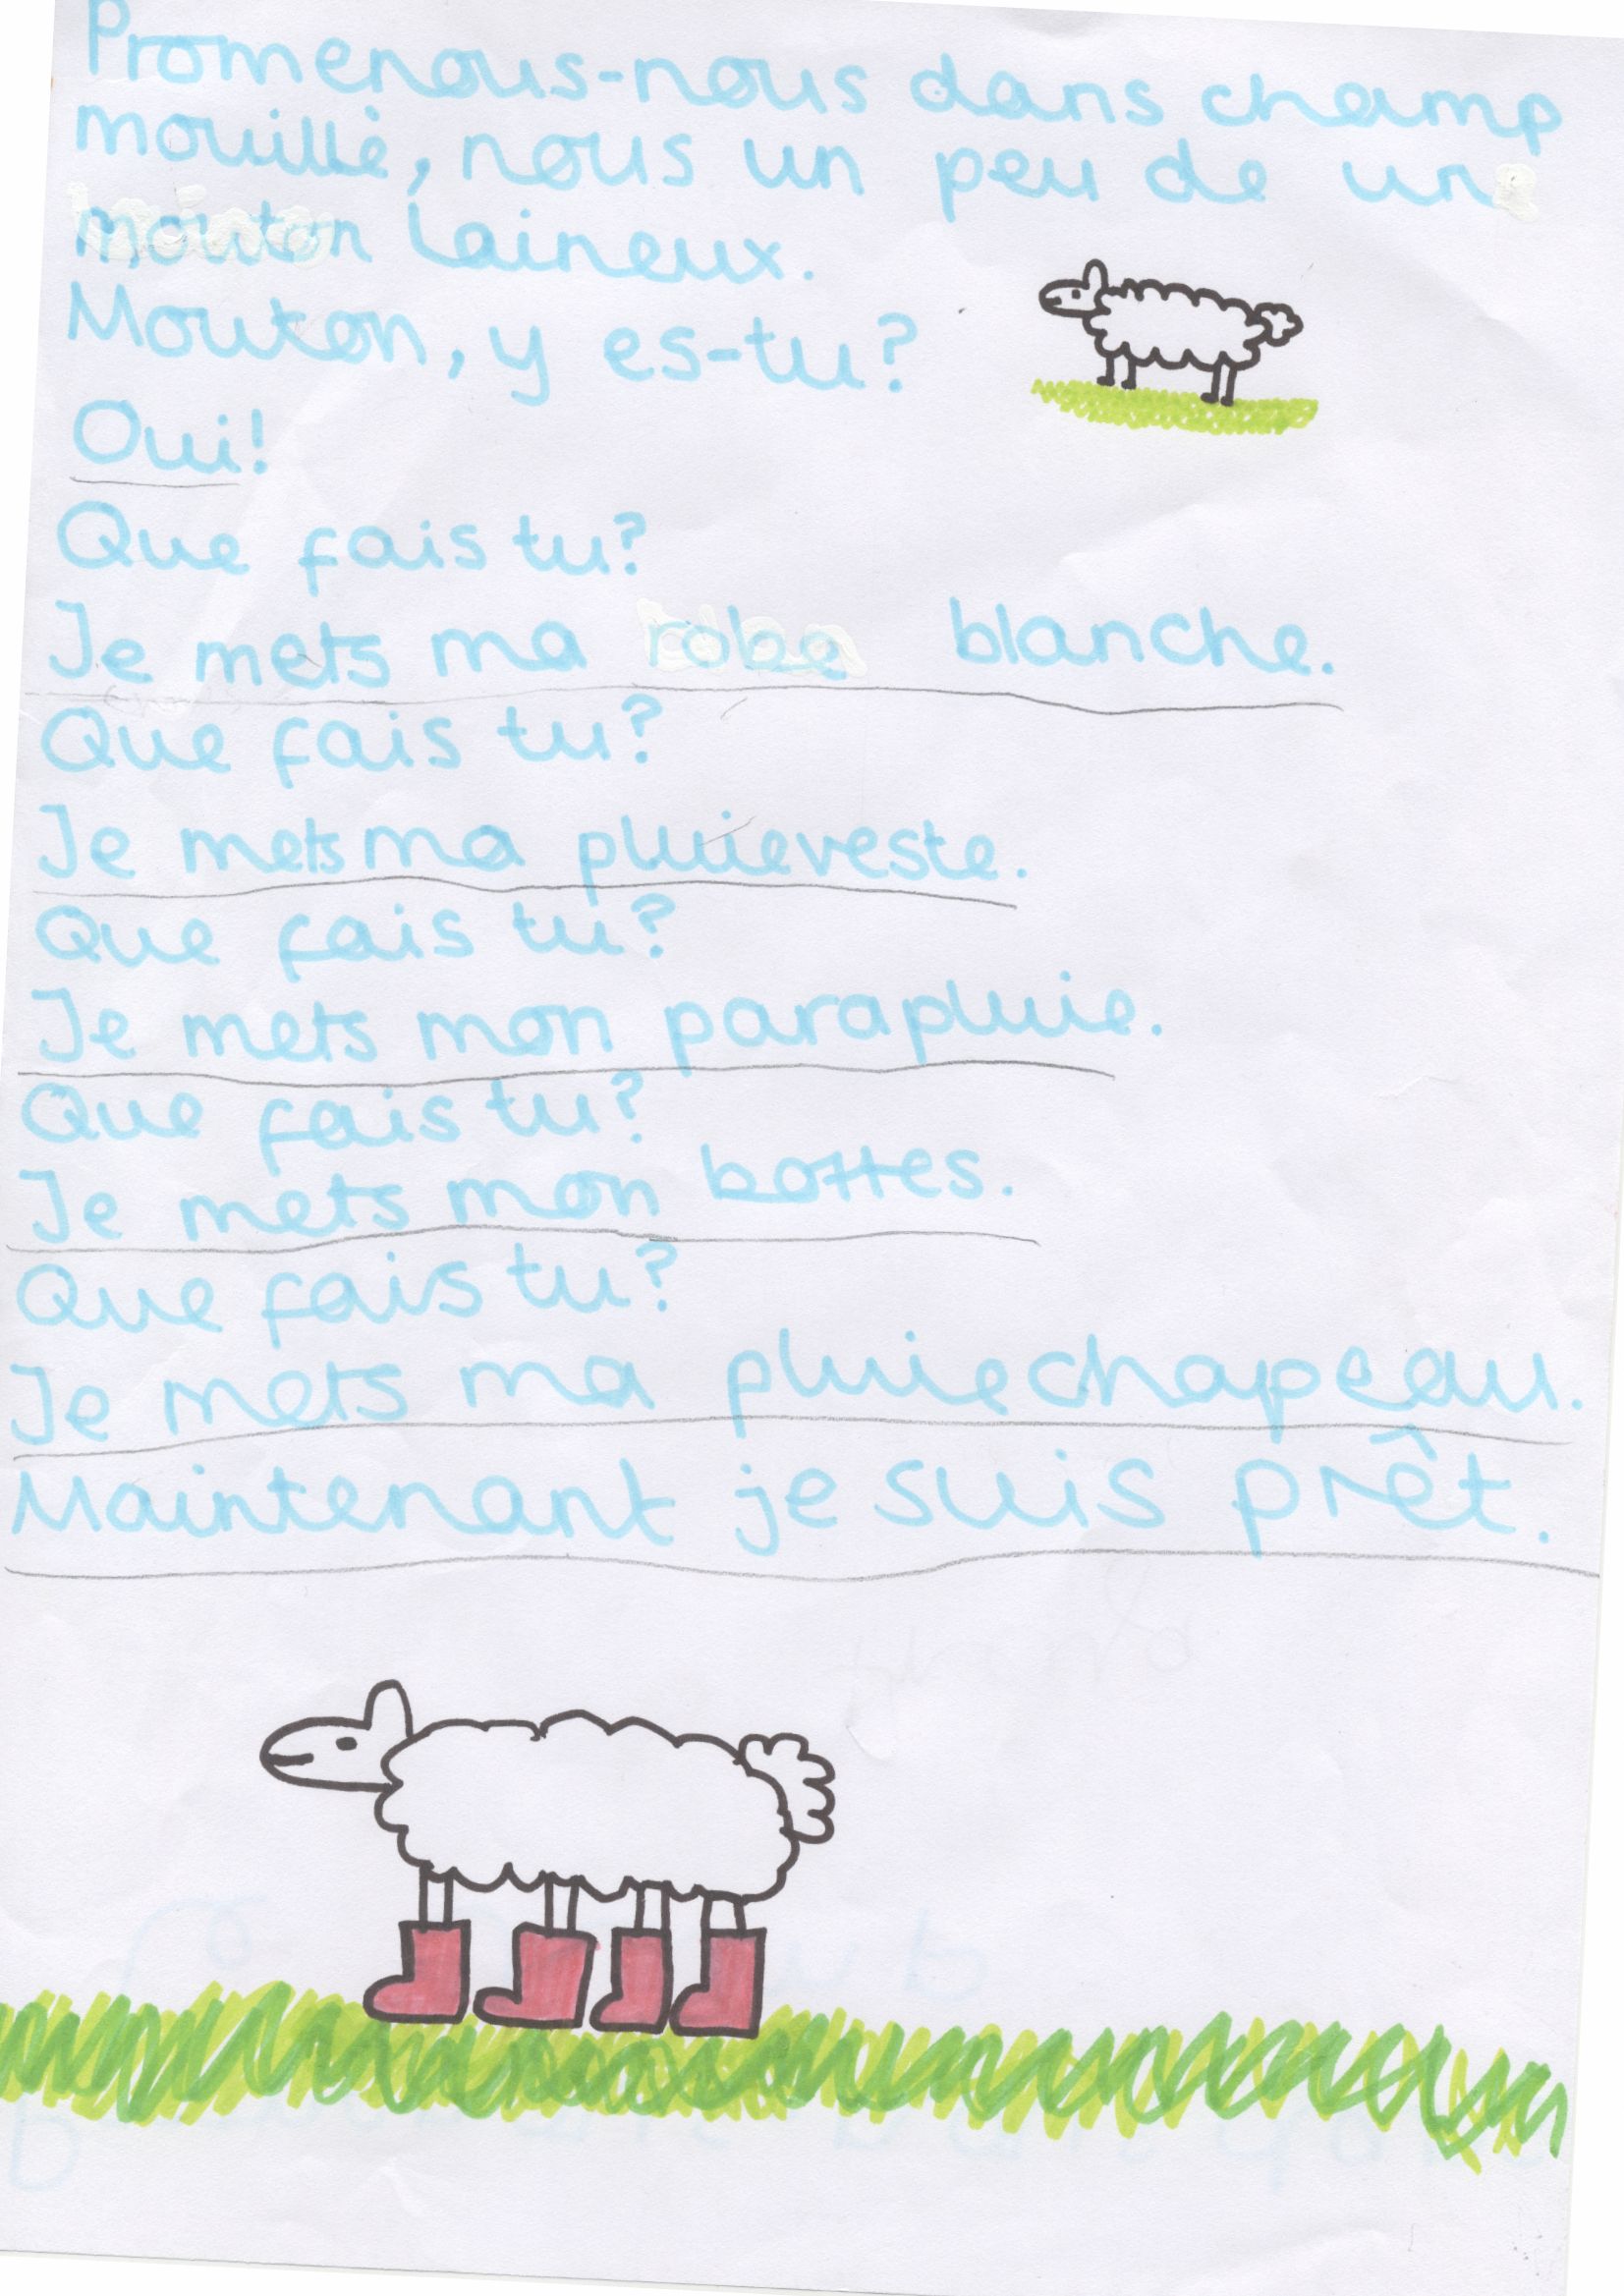 Promenous-nous dans champ
mouillé, nous un peu de un
mouton laineux.
Mouton, y es-tu?
Oui!
Que fais tu?
Je mets ma robe blanche.
Que fais tu?
Je mets ma pluieveste.
Que fais tu?
Je mets mon parapluie.
Que fais tu?
Je mets mon bottes.
Que fais tu?
Je mets ma pluiechapeau.
Maintenant je suis prêt.